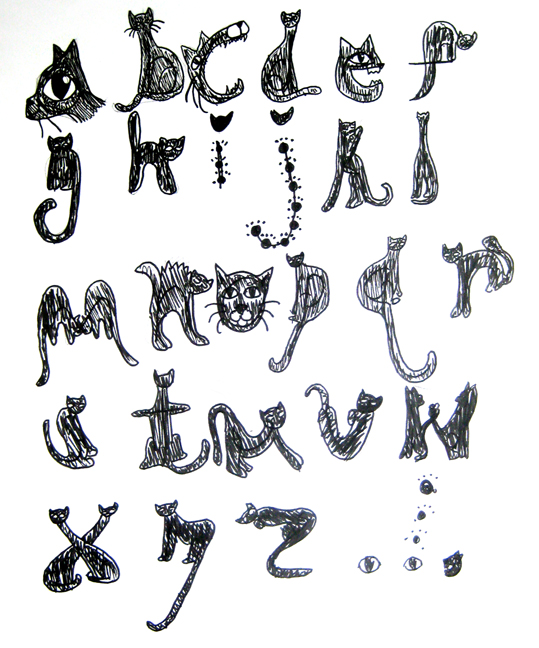 a b c d e f
g h i j k l
m n o p q r
s t u v w
x y z